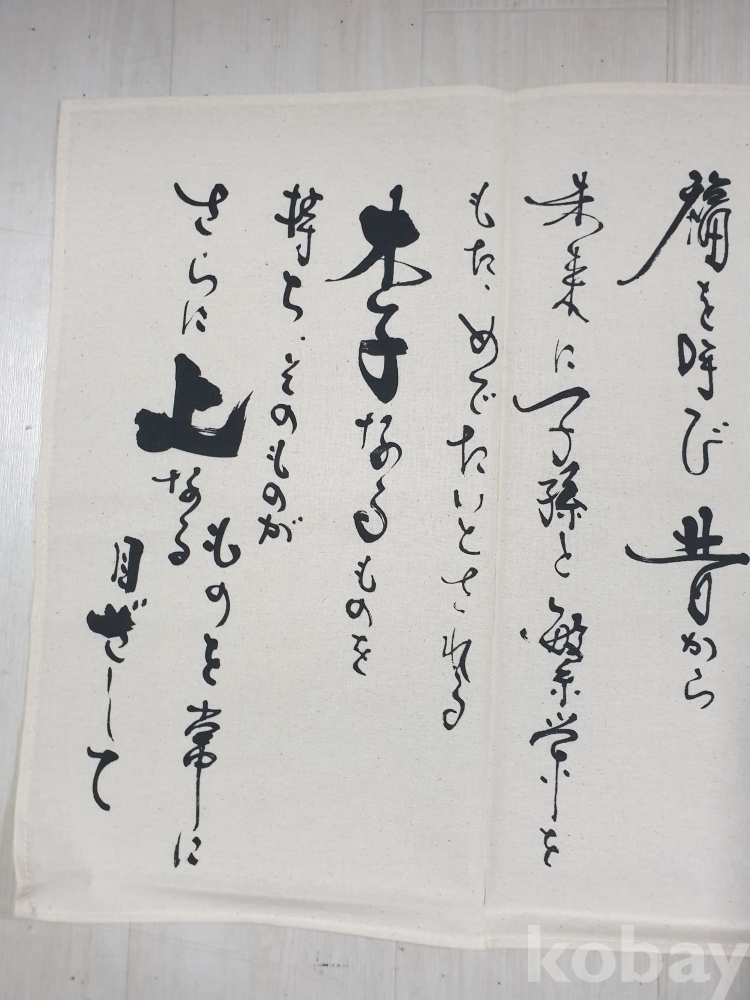 福を呼び昔から
未来に子孫と繁栄を
もた、めでたいとされる
李なるものを
持ち、そのものが
さらに上なるものを常に
目ざして
kobay